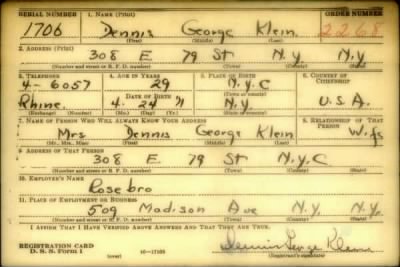 SERIAL NUMBER 1. NAME (Print) ORDER NUMBER
1706 Dennis George Klein 2268
(First) (Middle) (Last)
2. ADDRESS (Print)
308 E 79 St N.Y N.Y
(Number and street or R. F. D. number) (Town) (County) (State)
3. TELEPHONE 4. AGE IN YEARS 5. PLACE OF BIRTH 6. COUNTRY OF CITIZENSHIP
4-6057 29 N.Y.C
DATE OF BIRTH
Rhine. 4-24-11 N.Y. U.S.A.
(Exchange) (Number) (Mo.) (Day) (Yr.) (State or country)
7. NAME OF PERSON WHO WILL ALWAYS KNOW YOUR ADDRESS 8. RELATIONSHIP OF THAT PERSON
Mrs Dennis George Klein Wife
(Mr., Mrs., Miss) (First) (Middle) (Last)
9. ADDRESS OF THAT PERSON
308 E 79 St N.Y.C
(Number and street or R. F. D. number) (Town) (County) (State)
10. EMPLOYER'S NAME
Rose bro
11. PLACE OF EMPLOYMENT OR BUSINESS
509 Madison Ave N.Y. N.Y.
(Number and street or R. F. D. number) (Town) (County) (State)
I AFFIRM THAT I HAVE VERIFIED ABOVE ANSWERS AND THAT THEY ARE TRUE.
REGISTRATION CARD
D. S. S. FORM 1 (over) 16-17105
(Registrant's signature)